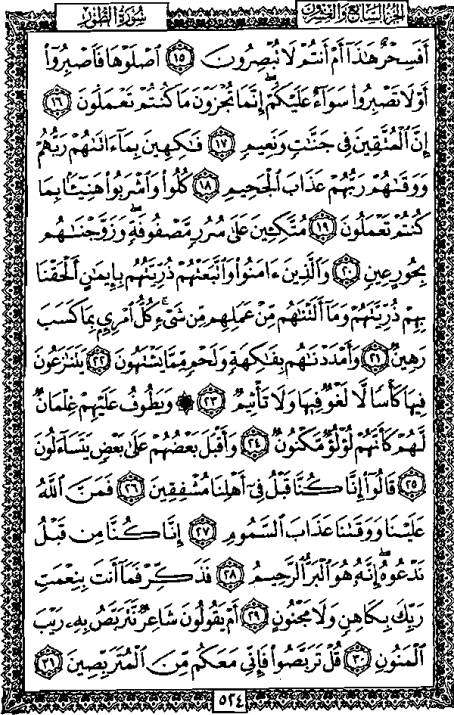 الجزء السابع والعشرون
سورة الطور
أَفَسِحْرٌ هَٰذَآ أَمْ أَنتُمْ لَا تُبْصِرُونَ ١٥ ٱصْلَوْهَا فَٱصْبِرُوٓا۟
أَوْ لَا تَصْبِرُوا۟ سَوَآءٌ عَلَيْكُمْ ۖ إِنَّمَا تُجْزَوْنَ مَا كُنتُمْ تَعْمَلُونَ ١٦
إِنَّ ٱلْمُتَّقِينَ فِى جَنَّٰتٍ وَنَعِيمٍ ١٧ فَٰكِهِينَ بِمَآ ءَاتَىٰهُمْ رَبُّهُمْ
وَوَقَىٰهُمْ رَبُّهُمْ عَذَابَ ٱلْجَحِيمِ ١٨ كُلُوا۟ وَٱشْرَبُوا۟ هَنِيٓـًٔۢا بِمَا
كُنتُمْ تَعْمَلُونَ ١٩ مُتَّكِـِٔينَ عَلَىٰ سُرُرٍ مَّصْفُوفَةٍ ۖ وَزَوَّجْنَٰهُم
بِحُورٍ عِينٍ ٢٠ وَٱلَّذِينَ ءَامَنُوا۟ وَٱتَّبَعَتْهُمْ ذُرِّيَّتُهُم بِإِيمَٰنٍ أَلْحَقْنَا
بِهِمْ ذُرِّيَّتَهُمْ وَمَآ أَلَتْنَٰهُم مِّنْ عَمَلِهِم مِّن شَىْءٍ ۚ كُلُّ ٱمْرِئٍۭ بِمَا كَسَبَ
رَهِينٌ ٢١ وَأَمْدَدْنَٰهُم بِفَٰكِهَةٍ وَلَحْمٍ مِّمَّا يَشْتَهُونَ ٢٢ يَتَنَٰزَعُونَ
فِيهَا كَأْسًا لَّا لَغْوٌ فِيهَا وَلَا تَأْثِيمٌ ٢٣ ۞ وَيَطُوفُ عَلَيْهِمْ غِلْمَانٌ
لَّهُمْ كَأَنَّهُمْ لُؤْلُؤٌ مَّكْنُونٌ ٢٤ وَأَقْبَلَ بَعْضُهُمْ عَلَىٰ بَعْضٍ يَتَسَآءَلُونَ
٢٥ قَالُوٓا۟ إِنَّا كُنَّا قَبْلُ فِىٓ أَهْلِنَا مُشْفِقِينَ ٢٦ فَمَنَّ ٱللَّهُ
عَلَيْنَا وَوَقَىٰنَا عَذَابَ ٱلسَّمُومِ ٢٧ إِنَّا كُنَّا مِن قَبْلُ
نَدْعُوهُ ۖ إِنَّهُۥ هُوَ ٱلْبَرُّ ٱلرَّحِيمُ ٢٨ فَذَكِّرْ فَمَآ أَنتَ بِنِعْمَتِ
رَبِّكَ بِكَاهِنٍ وَلَا مَجْنُونٍ ٢٩ أَمْ يَقُولُونَ شَاعِرٌ نَّتَرَبَّصُ بِهِۦ رَيْبَ
ٱلْمَنُونِ ٣٠ قُلْ تَرَبَّصُوا۟ فَإِنِّى مَعَكُم مِّنَ ٱلْمُتَرَبِّصِينَ ٣١
٥٢٤